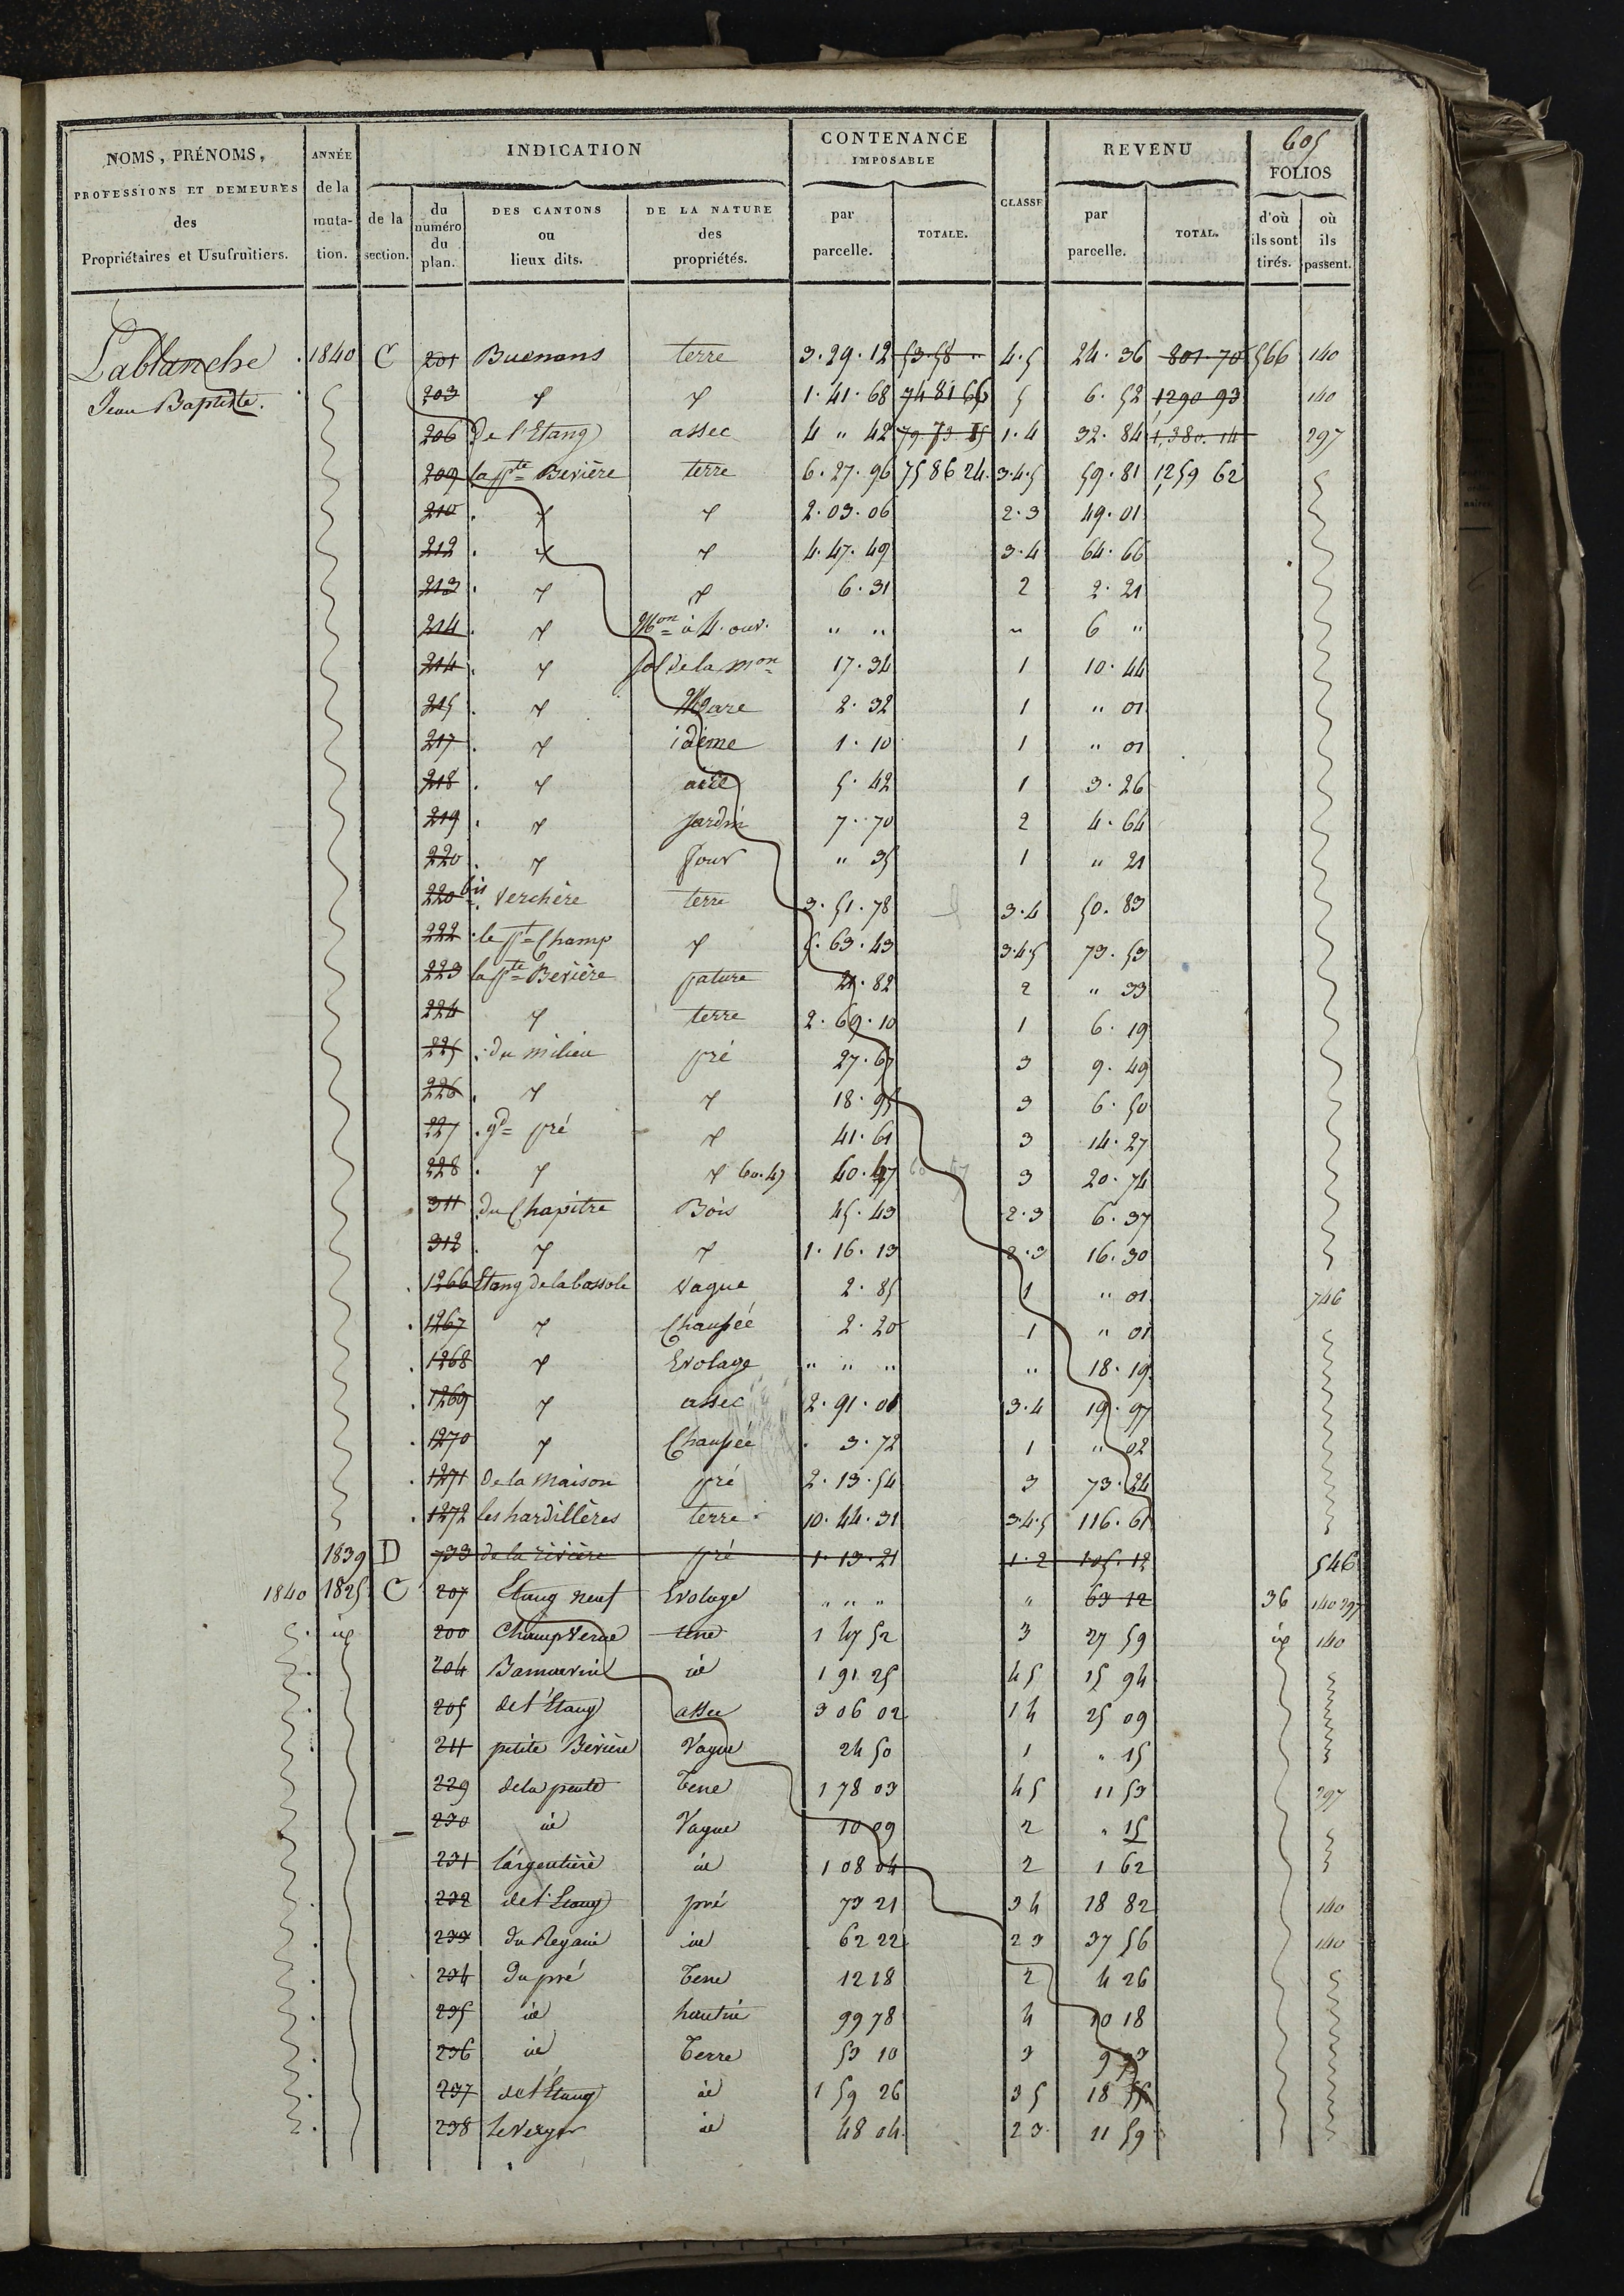 605
NOMS, PRÉNOMS, PROFESSIONS ET DEMEURES des Propriétaires et Usufruitiers. | ANNÉE de la muta-tion. | INDICATION | CONTENANCE IMPOSABLE | CLASSE | REVENU | FOLIOS
de la section. | du numéro du plan. | DES CANTONS ou lieux dits. | DE LA NATURE des propriétés. | par parcelle. | TOTALE. | par parcelle. | TOTAL. | d'où ils sont tirés. | où ils passent.
Lablanche 1840 C 201 Buenans terre 3.29.12 53.58 " 4.5 24.36 801.70 566 140
Jean Baptiste. 203 " " 1.41.68 74 81 66 5 6.52 1290 93 140
206 De l'Etang assec 4 " 42 79.73 1.4 32.84 1,380.14 297
209 la pte Bevière terre 6.27.96 75 86 24 3.4.5 59.81 1259 62
210 " " 2.03.06 2.3 49.01
212 " " 4.47.49 3.4 64.66
213 " " 6.31 2 2.21
214 " Mon à 4. ouv. " " " 6 "
214 " sol de la mon 17.34 1 10.44
215 " Mare 2.32 1 " 01
217 " idème 1.10 1 " 01
218 " 5.42 1 3.26
219 " Jardin 7.70 2 4.64
220 " four " 35 1 " 21
220 bis Verchère terre 3.51.78 3.4 50.83
222 le pt Champ " 5.63.43 3.4.5 73.53
223 la pte Bevière pature 21.82 2 " 33
224 " terre 2.69.10 1 6.19
225 du milieu pré 27.67 3 9.49
226 " " 18.95 3 6.50
227 gd pré " 41.61 3 14.27
228 " " 60.47 60.47 3 20.74
311 du Chapitre Bois 45.43 2.3 6.37
312 " " 1.16.13 2.3 16.30
1266 Etang de la bossole Vague 2.85 1 " 01 746
1267 " Chaussée 2.20 1 " 01
1268 " Evolage " " " " 18.19
1269 " assec 2.91.01 3.4 19.97
1270 " Chaussée 3.72 1 " 02
1271 de la Maison pré 2.13.54 3 73.24
1272 les hardillères terre 10.44.31 3.4.5 116.61
1839 D 733 de la rivière pré 1.13.21 1.2 105.12 546
1840 1825 C 207 Etang neuf Evolage " " " " 63 12 36 140 297
id 200 Champ Verne terre 1 47 52 3 27 59 id 140
204 id 1 91 25 4 5 15 94
205 de l'Etang assec 3 06 02 1 4 25 09
211 petite Bevière Vague 24 50 1 " 15
229 de la pente Terre 1 78 03 4 5 11 53 297
230 id Vague 10 09 2 " 15
231 l'argentière id 1 08 04 2 1 62
232 de l'Etang pré 73 21 3 4 18 82 140
233 du Regain id 62 22 2 3 37 56 140
234 du pré Terre 12 18 2 4 26
235 id hautin 99 78 4 10 18
236 id Terre 53 10 3 9
237 de l'Etang id 1 59 26 3 5 18
238 le Verger id 48 04 2 3 11 59